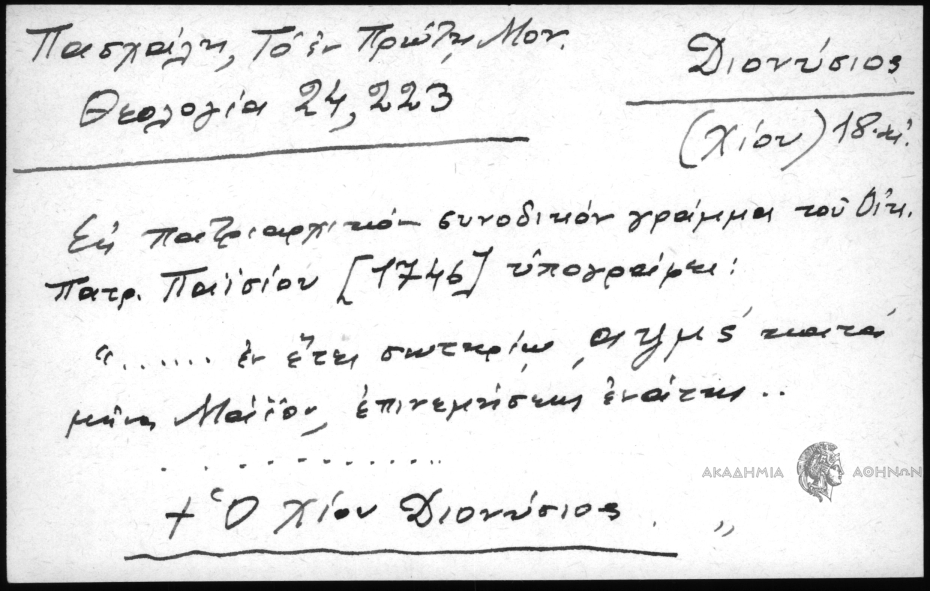 Πασχάλη, Τὸ ἐν Πρώτῃ Μον.
Θεολογία 24, 223
Διονύσιος
(Χίου) 18. αἰ.
Εἰς πατριαρχικὸν συνοδικὸν γράμμα τοῦ Οἰκ.
Πατρ. Παϊσίου [1746] ὑπογράφει:
"...... ἐν ἔτει σωτηρίῳ ͵αψμς΄ κατὰ
μῆνα Μάϊον, ἐπινεμήσεως ἐνάτης..
..............
+ Ὁ Χίου Διονύσιος. "
ΑΚΑΔΗΜΙΑ ΑΘΗΝΩΝ